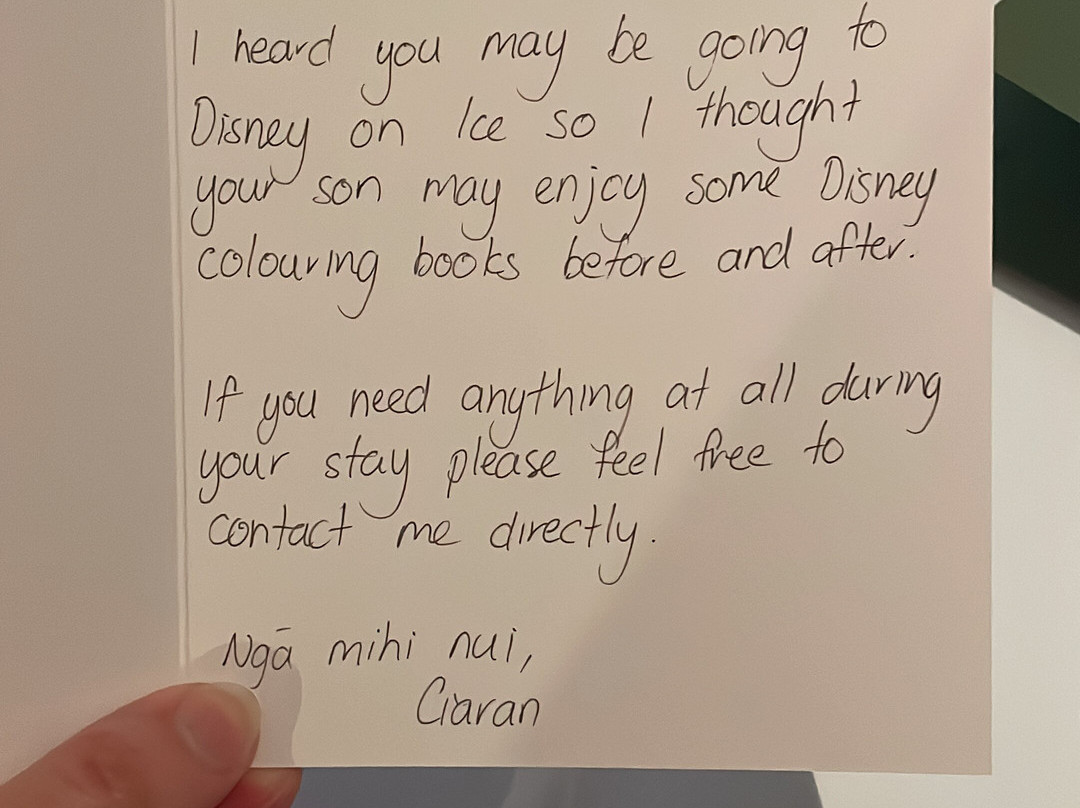 I heard you may be going to
Disney on Ice so I thought
your son may enjoy some Disney
colouring books before and after.
If you need anything at all during
your stay please feel free to
contact me directly.
Ngā mihi nui,
Ciaran